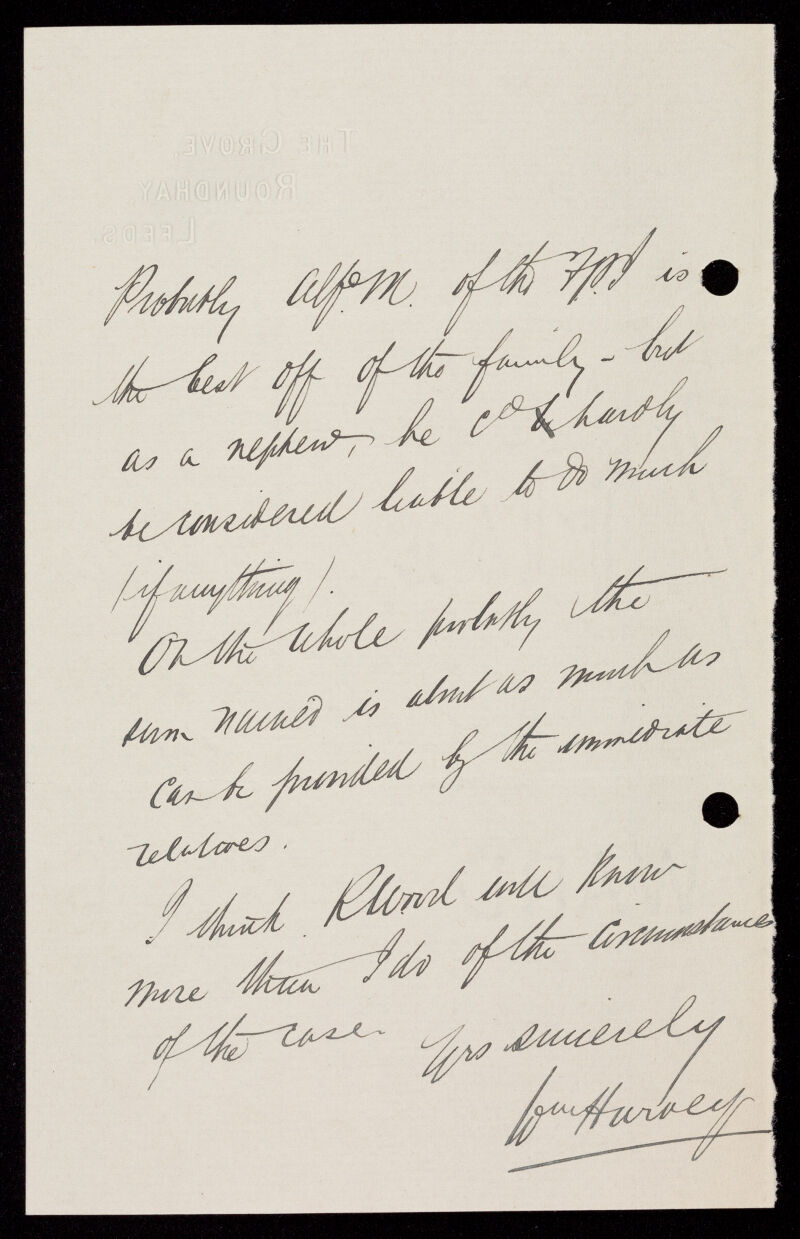 THE GROVE,
ROUNDHAY,
LEEDS.
Probably Alfd. M. of the F.P.S is
the best off of the family - but
as a nephew, he cd hardly
be considered liable to do much
(if anything).
On the whole probably the
sum named is about as much as
can be provided by the immediate
relatives.
I think RWood will know
more than I do of the circumstances
of the case.
Yrs sincerely
Wm Harvey